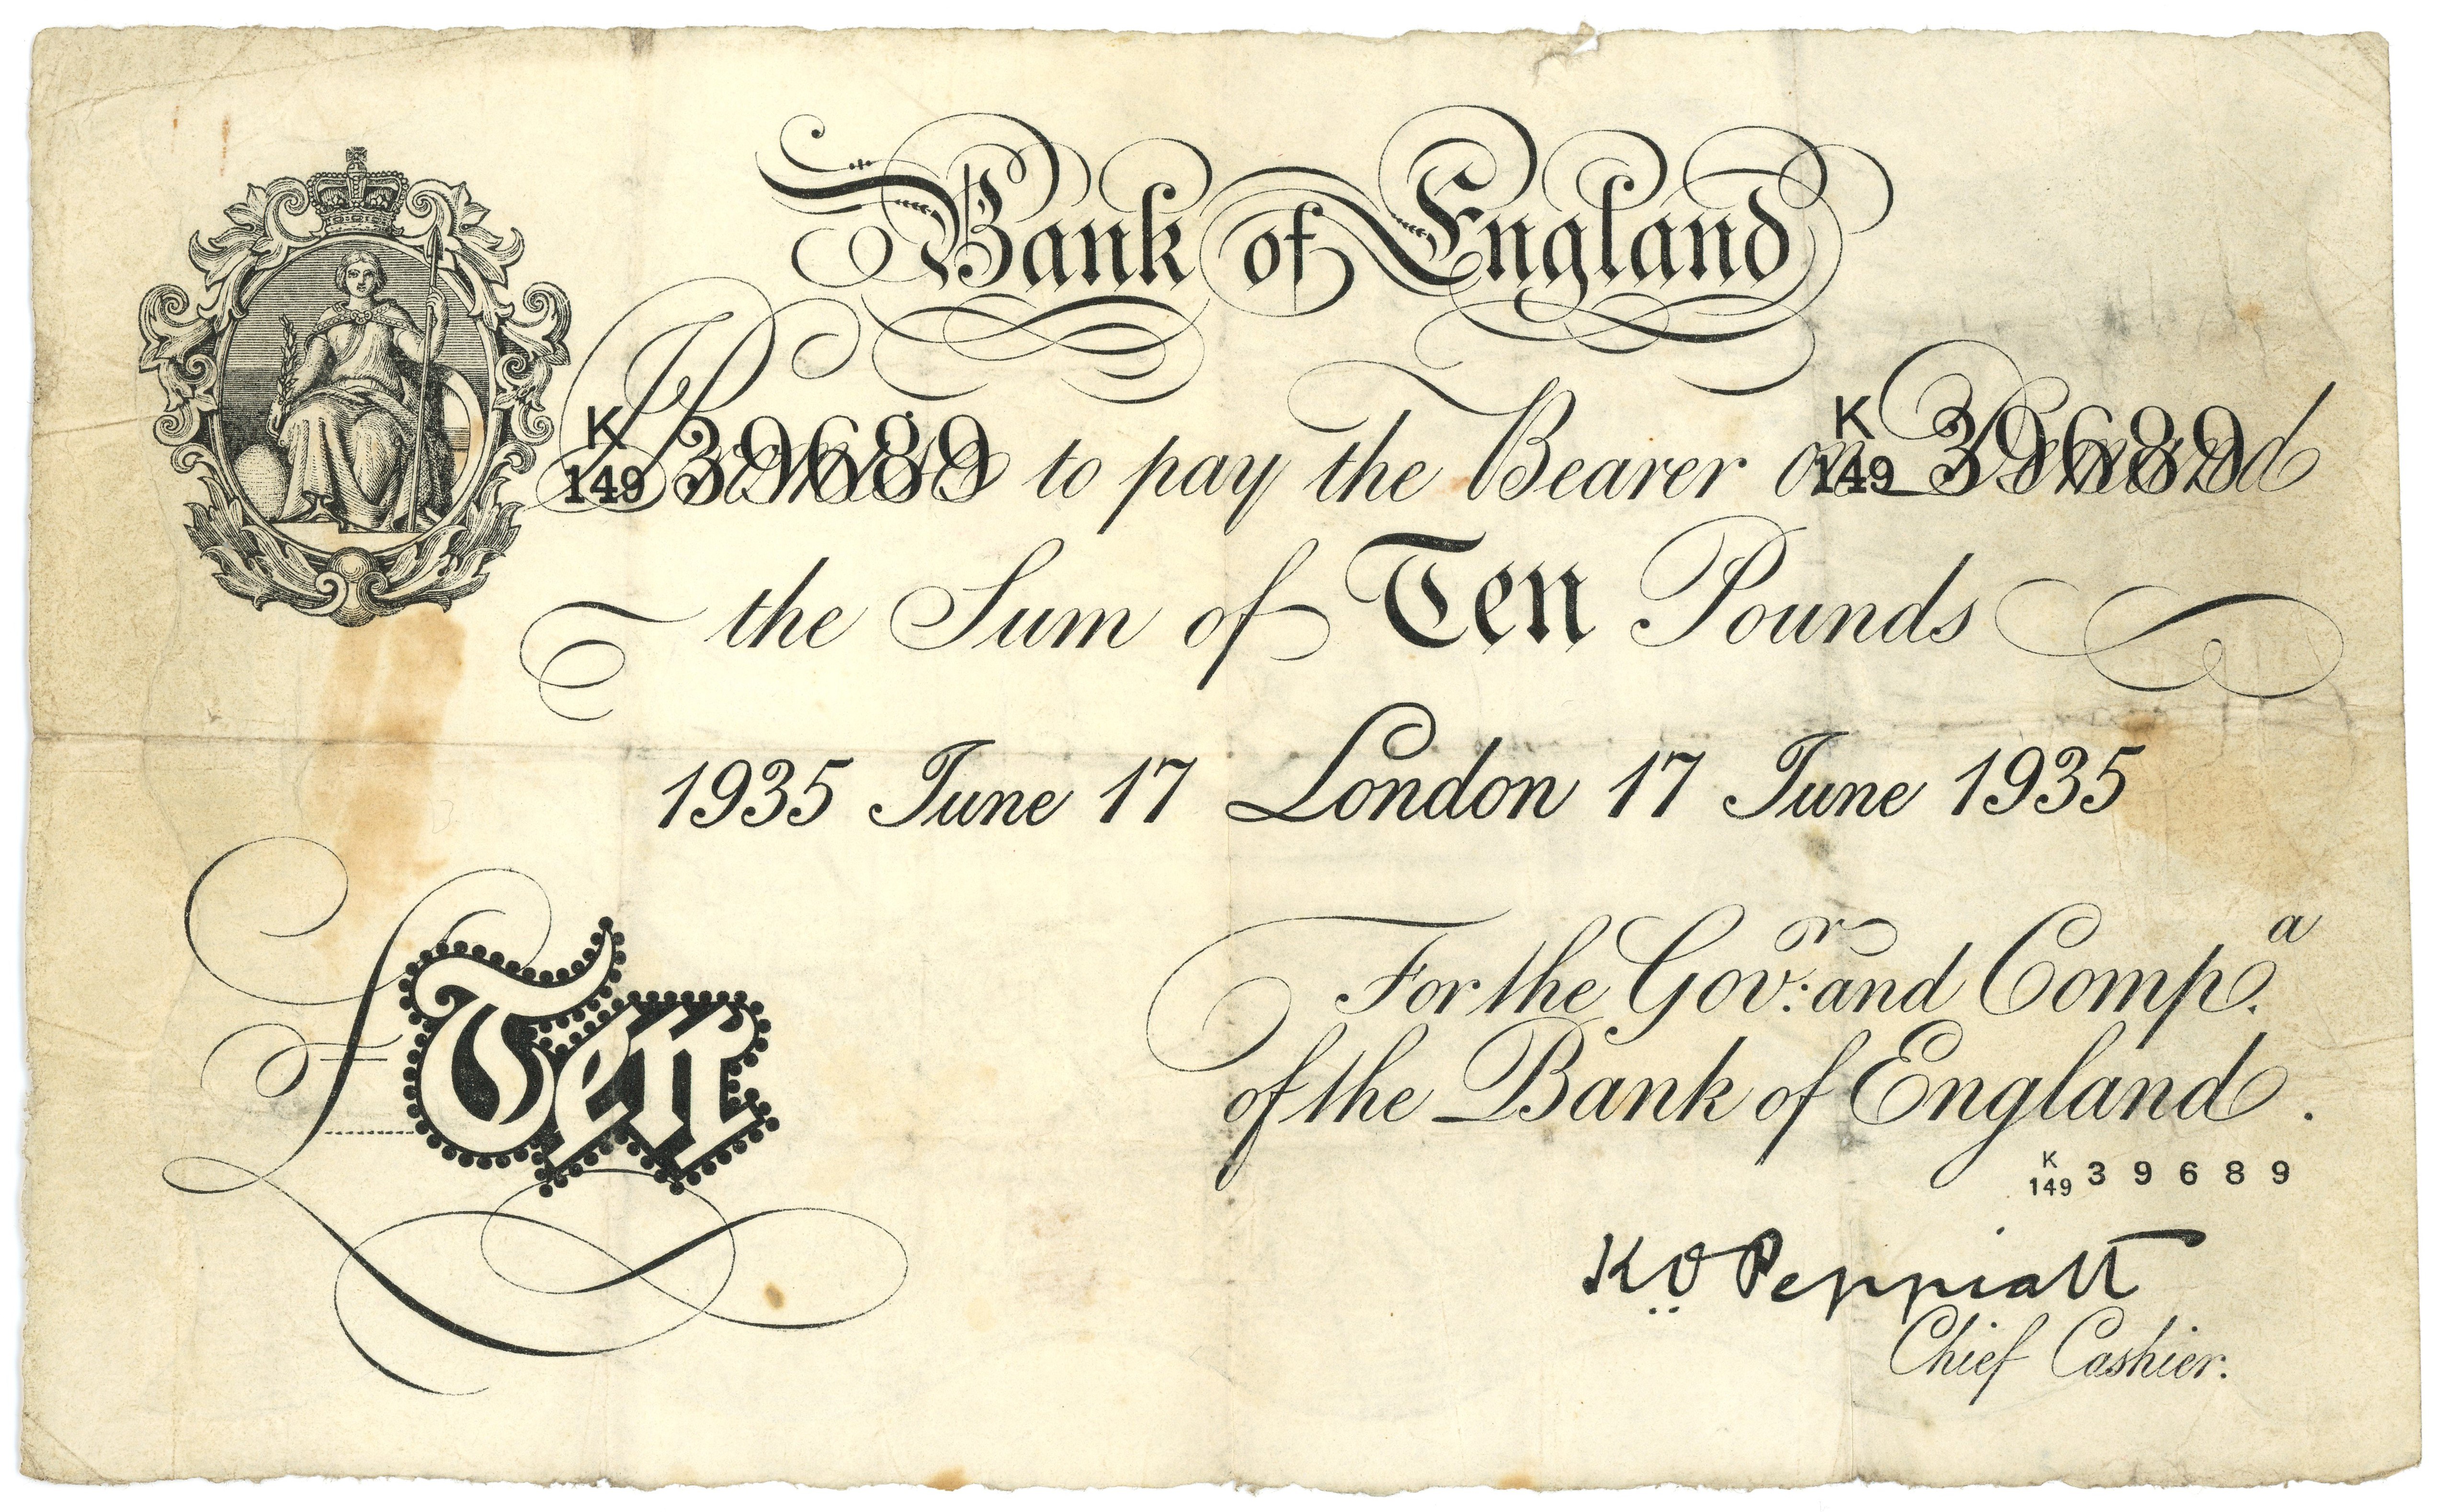 Bank of England
K
149 39689 K
149 39689
I Promise to pay the Bearer on Demand
the Sum of Ten Pounds
1935 June 17 London 17 June 1935
£Ten
For the Gov:r and Comp.a
of the Bank of England.
K
149 39689
K O Peppiatt
Chief Cashier.